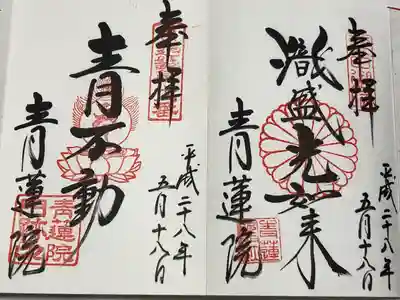 奉拝
熾盛光如来
青蓮院
平成二十八年
五月十八日
奉拝
青不動
青蓮院
平成二十八年
五月十八日
青蓮院